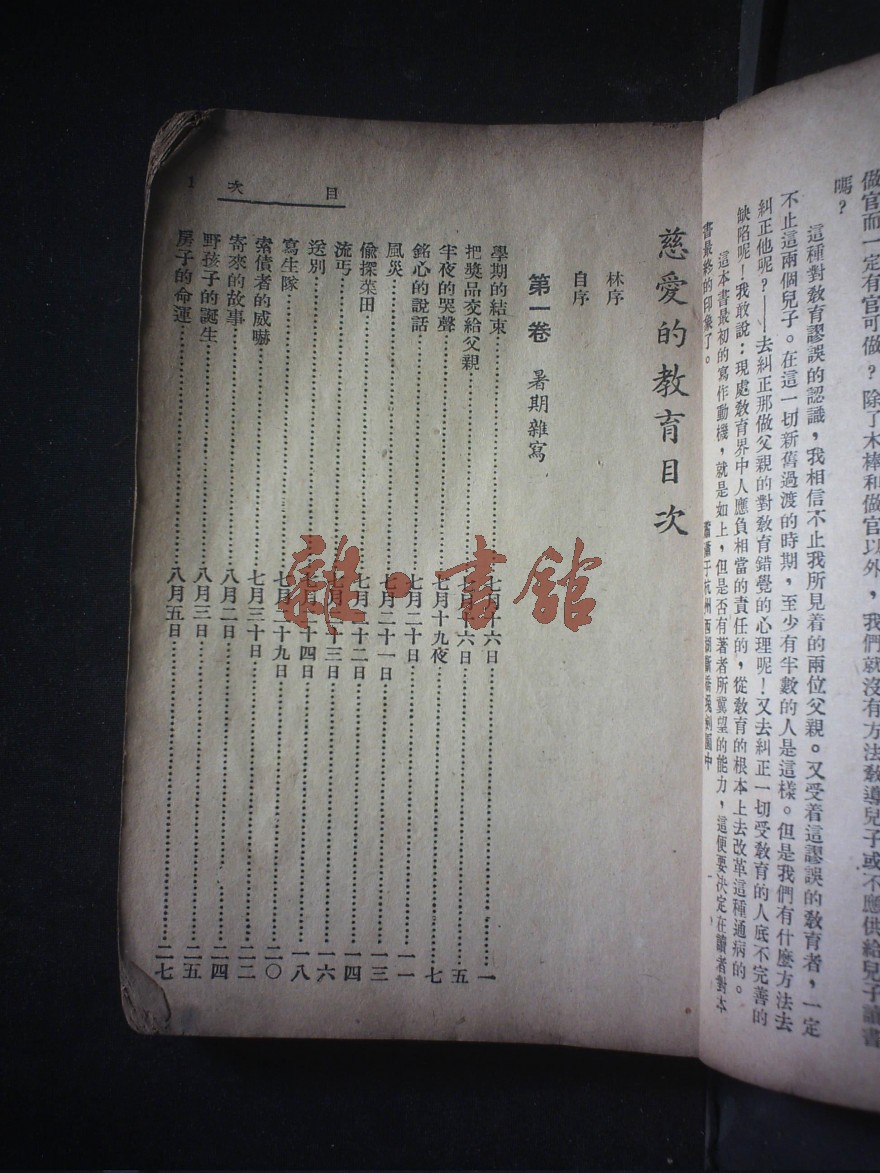 做官而一定有官可做？除了木棒和做官以外，我們就沒有方法教導兒子或不應供給兒子讀書
嗎？
這種對教育謬誤的認識，我相信不止我所見着的兩位父親。又受着這謬誤的教育者，一定
不止這兩個兒子。在這一切新舊過渡的時期，至少有半數的人是這樣。但是我們有什麼方法去
糾正他呢？——去糾正那做父親的對教育錯覺的心理呢！又去糾正一切受教育的人底不完善的
缺陷呢！我敢說：現處教育界中人應負相當的責任的，從教育的根本上去改革這種通病的。
這本書最初的寫作動機，就是如上，但是否有著者所冀望的能力，這便要決定在讀者對本
書最終的印象了。
于杭州西湖
慈愛的教育目次
林序
自序
第一卷 暑期雜寫
學期的結束 七月十六日 一
把獎品交給父親 十六日 五
半夜的哭聲 七月十九夜 七
銘心的說話 七月二十日 一一
風災 七月二十一日 一三
偷探菜田 七月二十二日 一四
流丐 七月二十三日 一六
送別 十四日 一八
寫生隊 七月二十九日 二〇
索債者的威嚇 七月三十日 二二
寄來的故事 八月二日 二四
野孩子的誕生 八月三日 二五
房子的命運 八月五日 二七
目次 1
雜·書館